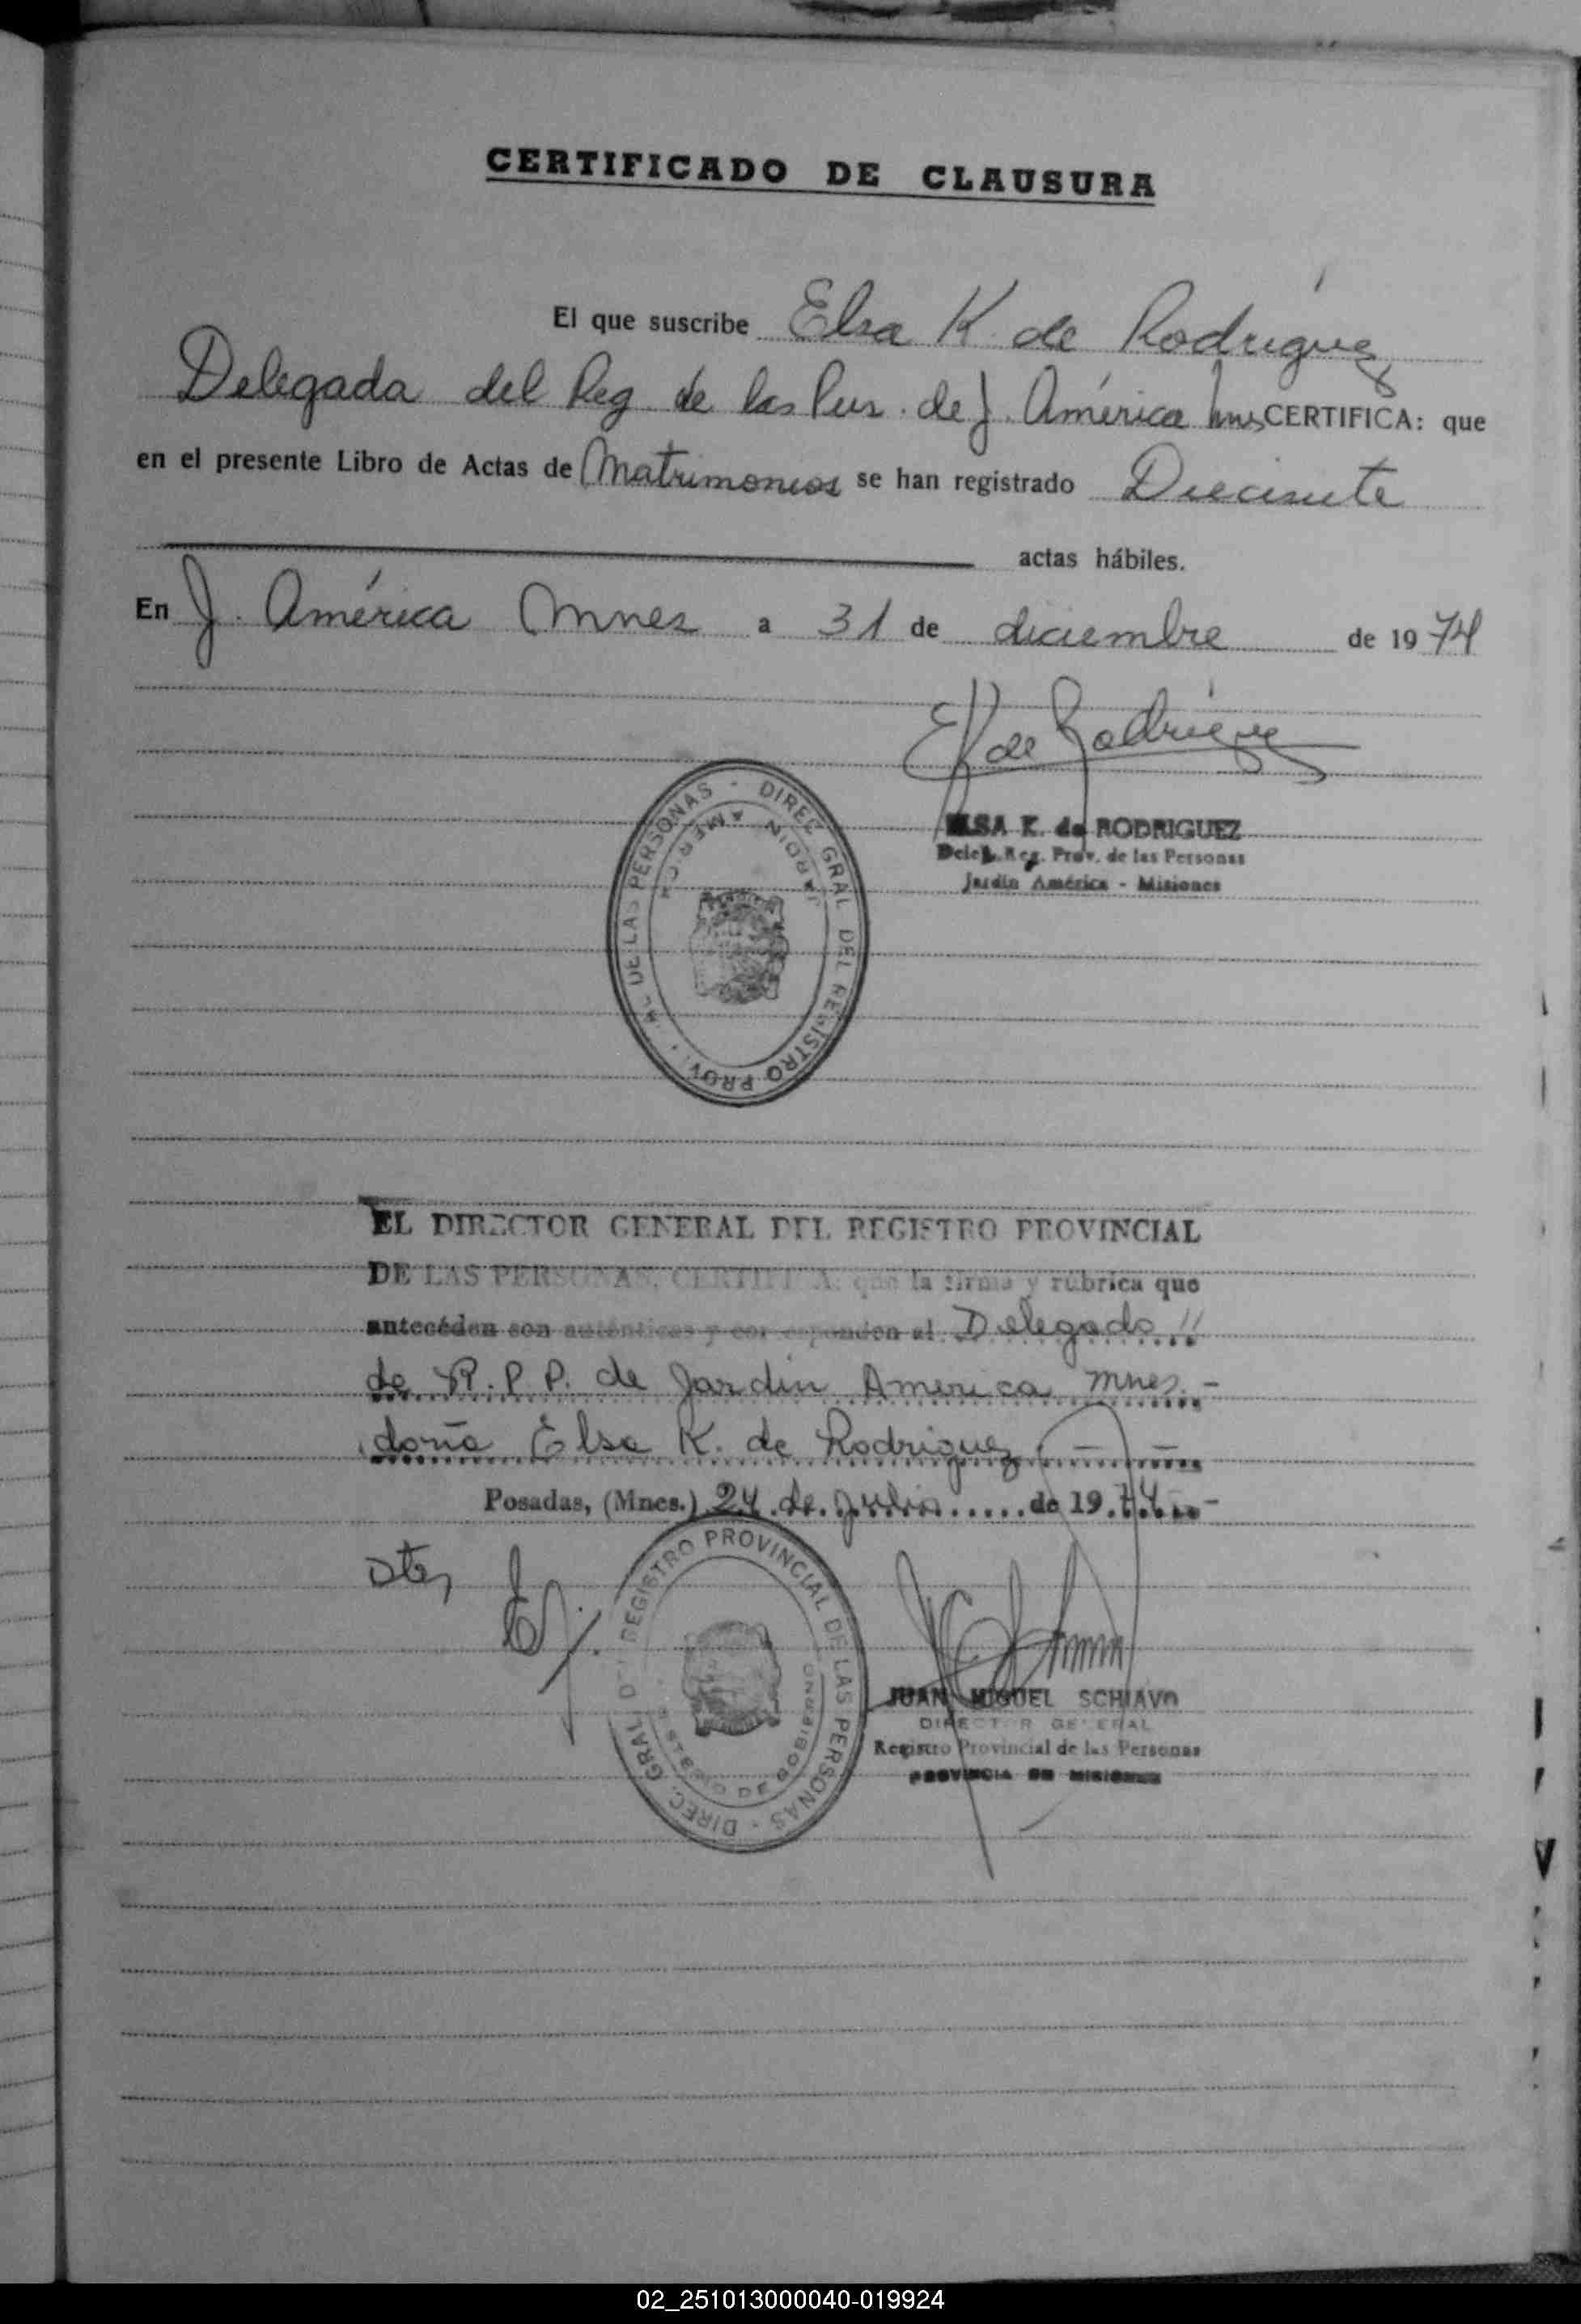 CERTIFICADO DE CLAUSURA
El que suscribe Elsa K. de Rodríguez
Delegada del Reg de las Per. de J. América Mnes CERTIFICA: que
en el presente Libro de Actas de Matrimonios se han registrado Diecisiete
actas hábiles.
En J. América Mnes a 31 de diciembre de 1974
EK de Rodríguez
ELSA K. de RODRIGUEZ
Deleg. Reg. Prov. de las Personas
Jardín América - Misiones
DIREC. GRAL DEL REGISTRO PROV. DE LAS PERSONAS
JARDIN AMERICA
EL DIRECTOR GENERAL DEL REGISTRO PROVINCIAL
DE LAS PERSONAS, CERTIFICA: que la firma y rúbrica que
anteceden son auténticas y corresponden al Delegado
de R. P. P. de Jardin America mnes. -
doña Elsa K. de Rodriguez
Posadas, (Mnes.) 24 de Julio de 1974 -
DIREC. GRAL DEL REGISTRO PROVINCIAL DE LAS PERSONAS
DE GOBIERNO
JUAN MIGUEL SCHIAVO
DIRECTOR GENERAL
Registro Provincial de las Personas
PROVINCIA DE MISIONES
02_251013000040-019924